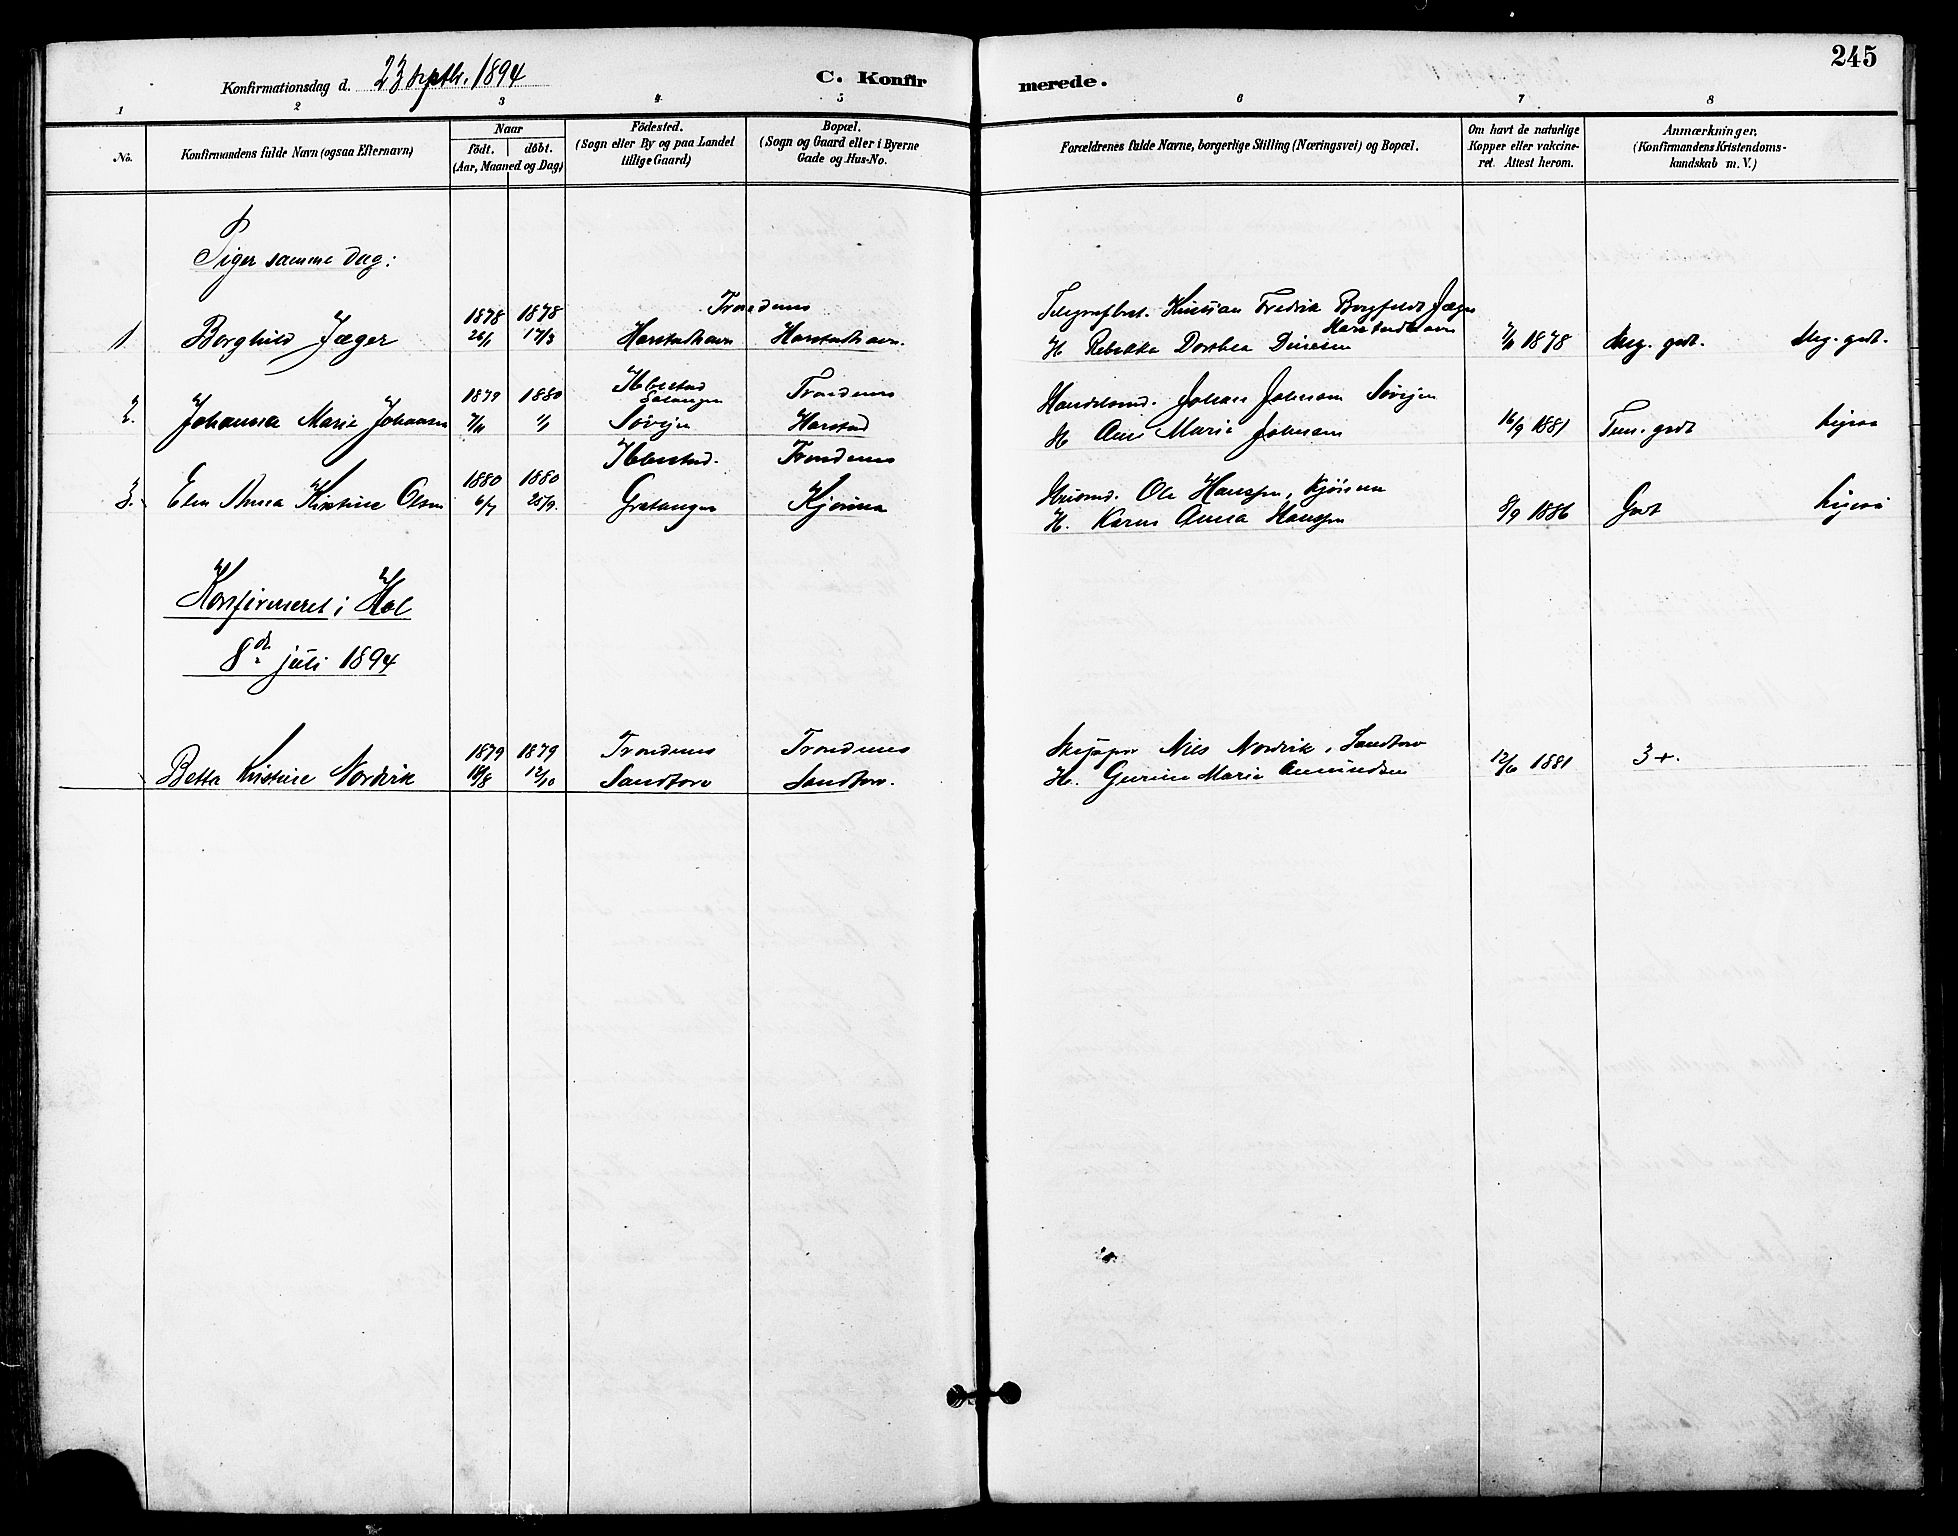 245
Konfirmationsdag d. 23 septbr. 1894
C. Konfirmerede.
1 2 3 4 5 6 7 8
No.
Konfirmandens fulde Navn (ogsaa Efternavn)
Naar
födt. döbt.
(Aar, Maaned og Dag)
Födested.
(Sogn eller By og paa Landet
tillige Gaard)
Bopæl.
(Sogn og Gaard eller i Byerne
Gade og Hus-No.
Forældrenes fulde Navne, borgerlige Stilling (Næringsvei) og Bopæl.
Om havt de naturlige
Kopper eller vakcine-
ret. Attest herom.
Anmærkninger,
(Konfirmandens Kristendoms-
kundskab m. V.)
Piger samme dag:
1878 1878 Trondenes Telegrafbest. Kristian Fredrik Borgfeldt Jæger
Harstadhavn
1. Borghild Jæger 26/1 17/3 Harstadhavn Harstadhavn. H. Rebekka Dorthea 1878 Meg. godt. Meg. godt.
1879 1880 Ibbestad Trondenes
Salangen
Handelsmd. Johan Johansen Søvejen
2. Johanna Marie Johansen 1/1 Søvejen Harstad H. Ane Marie Johansen 16/9 1881 Tem. godt Ligesaa
1880 1880 Ibbestad. Trondenes Husmd. Ole Hanssen, Kjønna
3. Elen Anna Kristine Olsen 6/7 25/9 Gratangen Kjønna H. Karen Anna Hanssen 8/9 1886 Godt Ligesaa
Konfirmeret i Hol
8de juli 1894
1879 1879 Trondenes Trondenes Skipper Nils Nordvik, Sandtorv
Betta Kristine Nordvik 18/8 12/10 Sandtorv Sandtorv. H. Gurine Marie Amundsen 12/6 1881 3+.